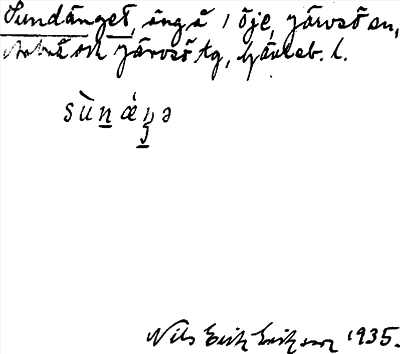 Sundänget, äng å 1 Öje, Järvsö sn,
Arbrå och Järvsö tg, Gävleb. l.
sùn ǽŋə
Nils Erik Eriksson 1935.